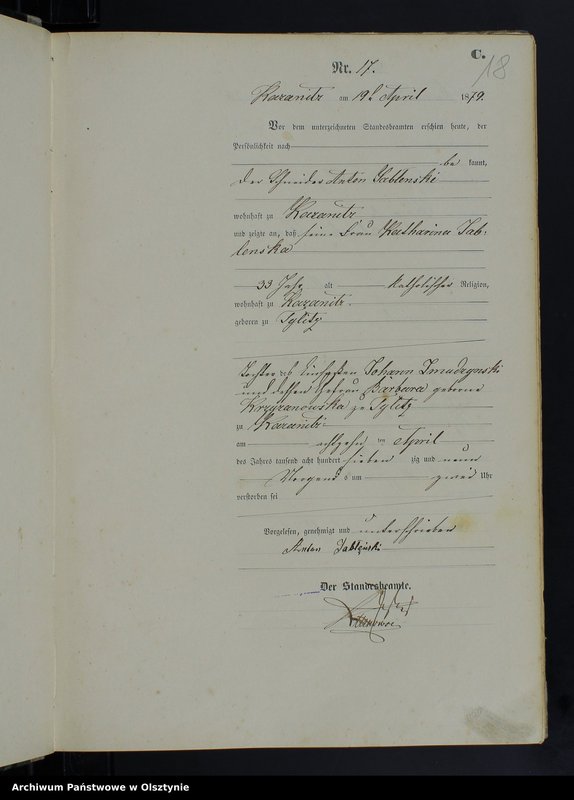 C.
18
Nr. 17.
Kazanitz am 19t April 1879.
Vor dem unterzeichneten Standesbeamten erschien heute, der
Persönlichkeit nach
be kannt,
der Schneider Anton Jablonski
wohnhaft zu Kazanitz
und zeigte an, daß seine Frau Katharina Jab-
lonska
33 Jahr alt katholischer Religion,
wohnhaft zu Kazanitz
geboren zu Tylitz
Tochter des Johann Zmudzynski
und dessen Ehefrau Barbara geborene
Krzyzanowska zu Tylitz
zu Kazanitz
am achtzehn ten April
des Jahres tausend acht hundert sieben zig und neun
Morgens um zwei Uhr
verstorben sei
Vorgelesen, genehmigt und unterschrieben
Anton Jablonski
Der Standesbeamte.
Archiwum Państwowe w Olsztynie